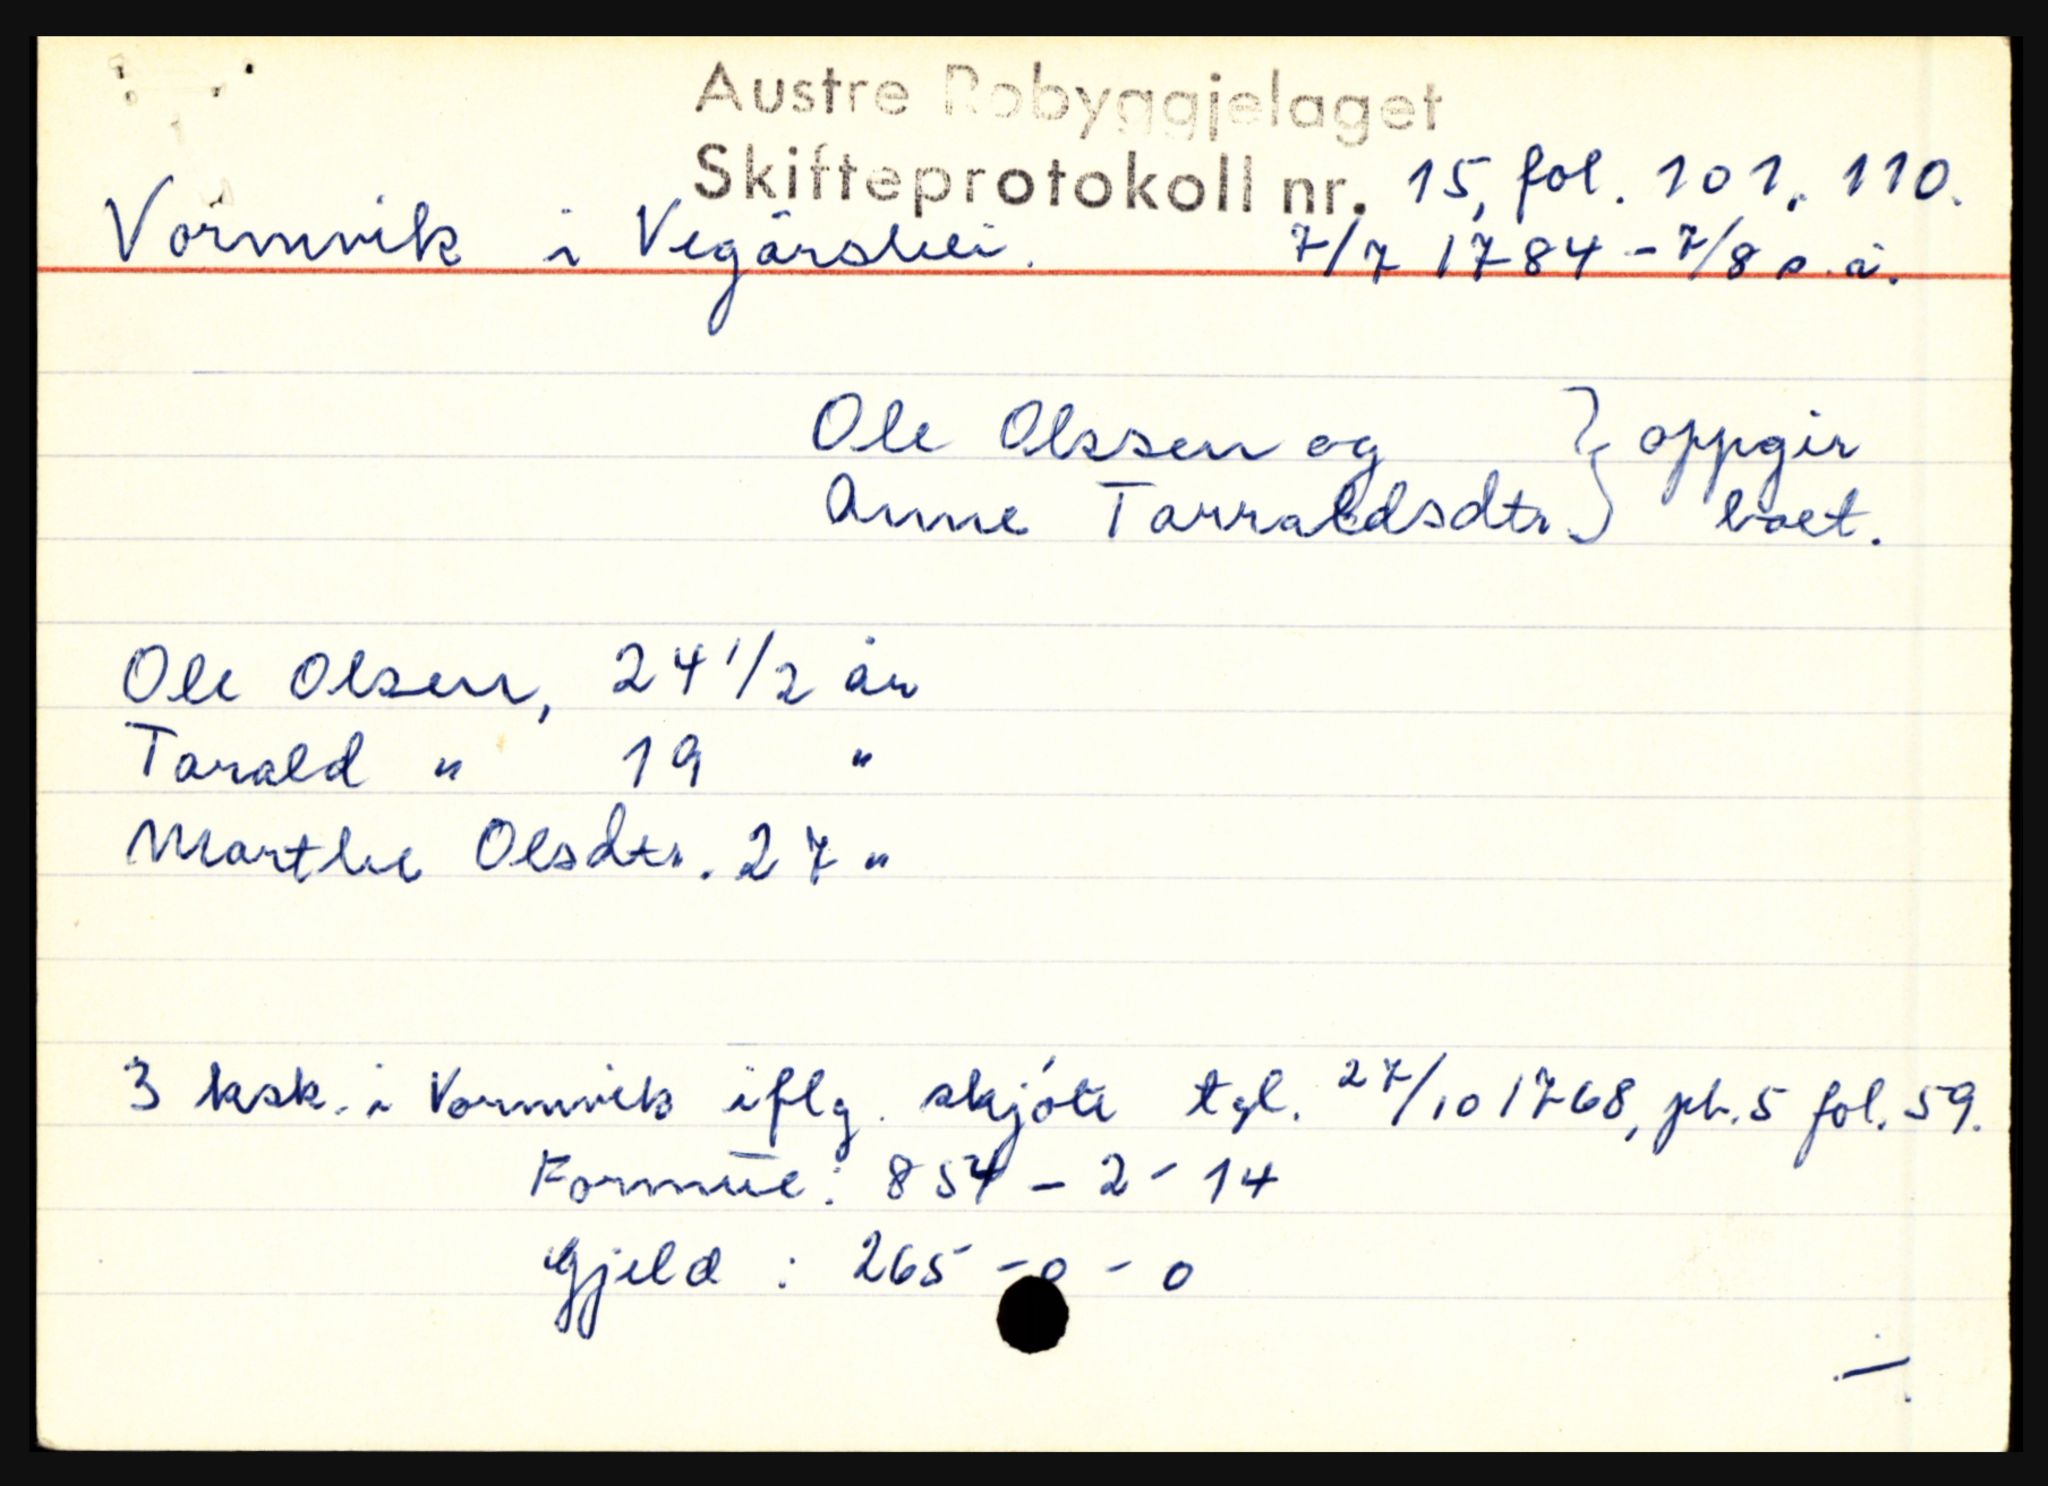 Austre Robyggjelaget
Skifteprotokoll nr. 15, fol. 101, 110.
Vormvik i Vegårshei. 7/7 1784 - 7/8 s. å.
Ole Olssen og } oppgir
Anne Tarraldsdtr } boet.
Ole Olsen, 24 1/2 år
Tarald " 19 "
Marthe Olsdtr. 27 "
3 ksk. i Vormvik iflg. skjöte tgl. 27/10 1768, pb. 5 fol. 59.
Formue: 854 - 2 - 14
Gjeld : 265 - 0 - 0